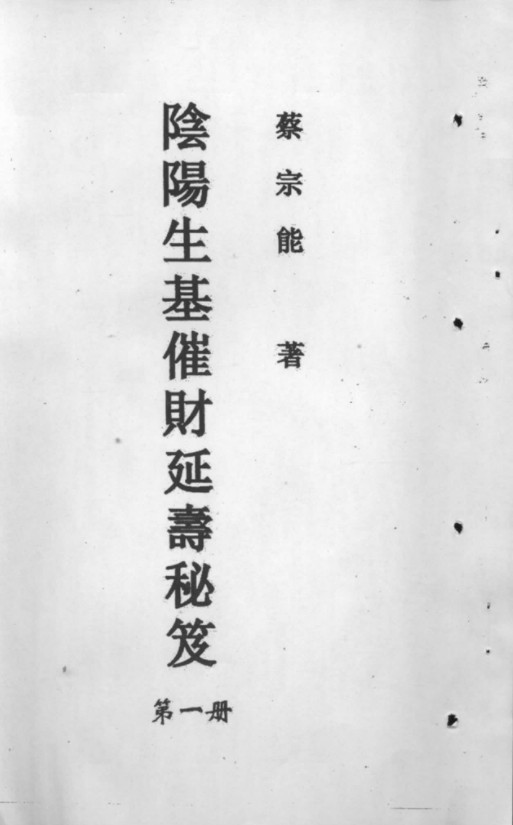 蔡宗能 著
陰陽生基催財延壽秘笈
第一册